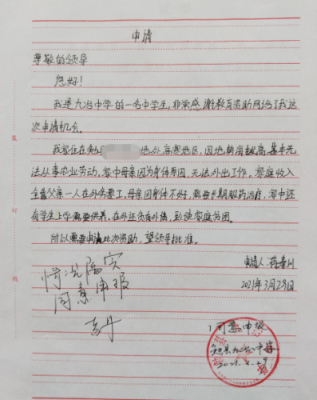 申请
尊敬的领导
您好！
我是九冶中学的一名中学生，非常感谢教育资助网给了我这
次申请机会。
我家住在 地处高寒地区，因地势海拔高基本无
法从事农业劳动，家中母亲因为身体原因无法外出工作，家庭收入
全靠父亲一人在外务工，母亲因身体不好，需要长期服药治疗，家中还
有学生上学需要供养，在外还负有外债，致使家庭贫困。
所以需要申请此次资助，望领导批准。
申请人
2021年3月29日
情况属实
同意申报
同意申报